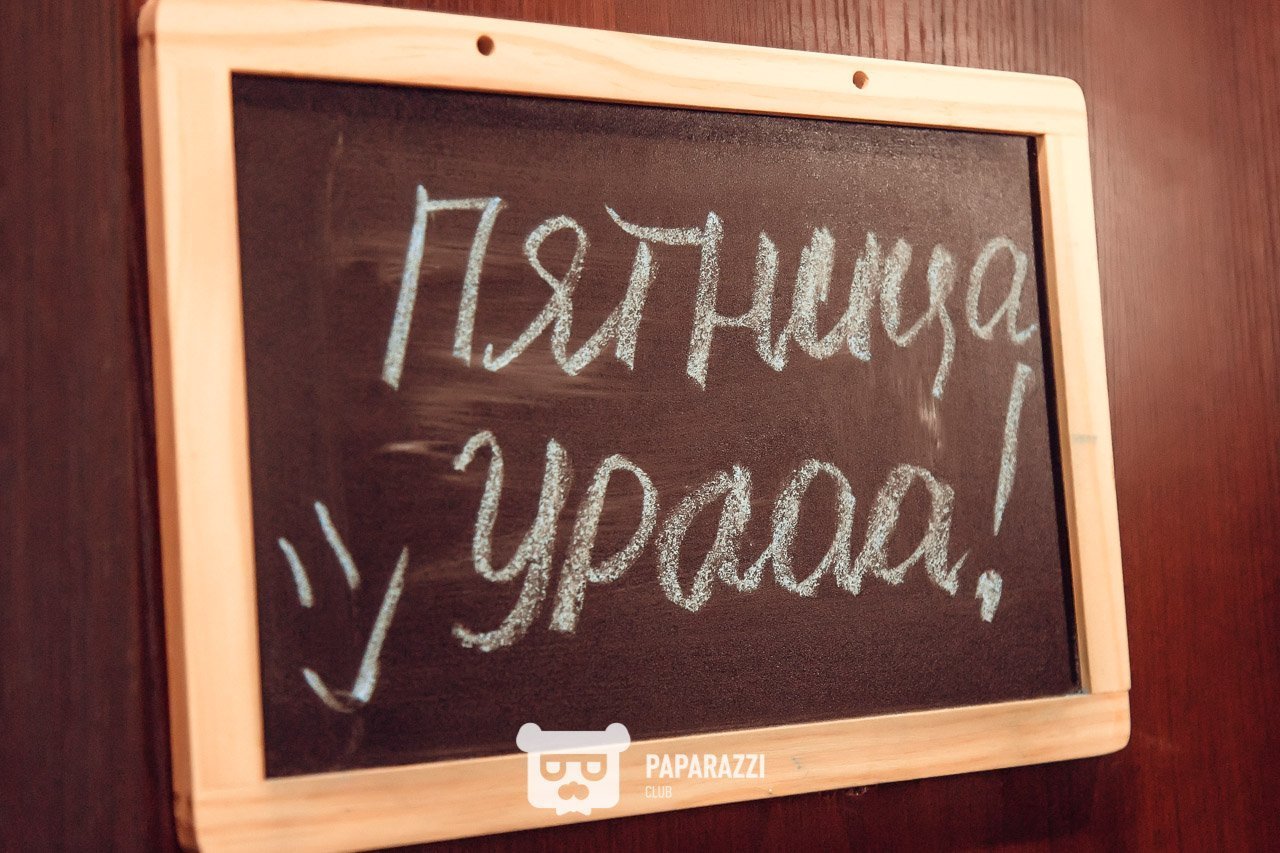 Пятница
ураaа!
PAPARAZZI
CLUB